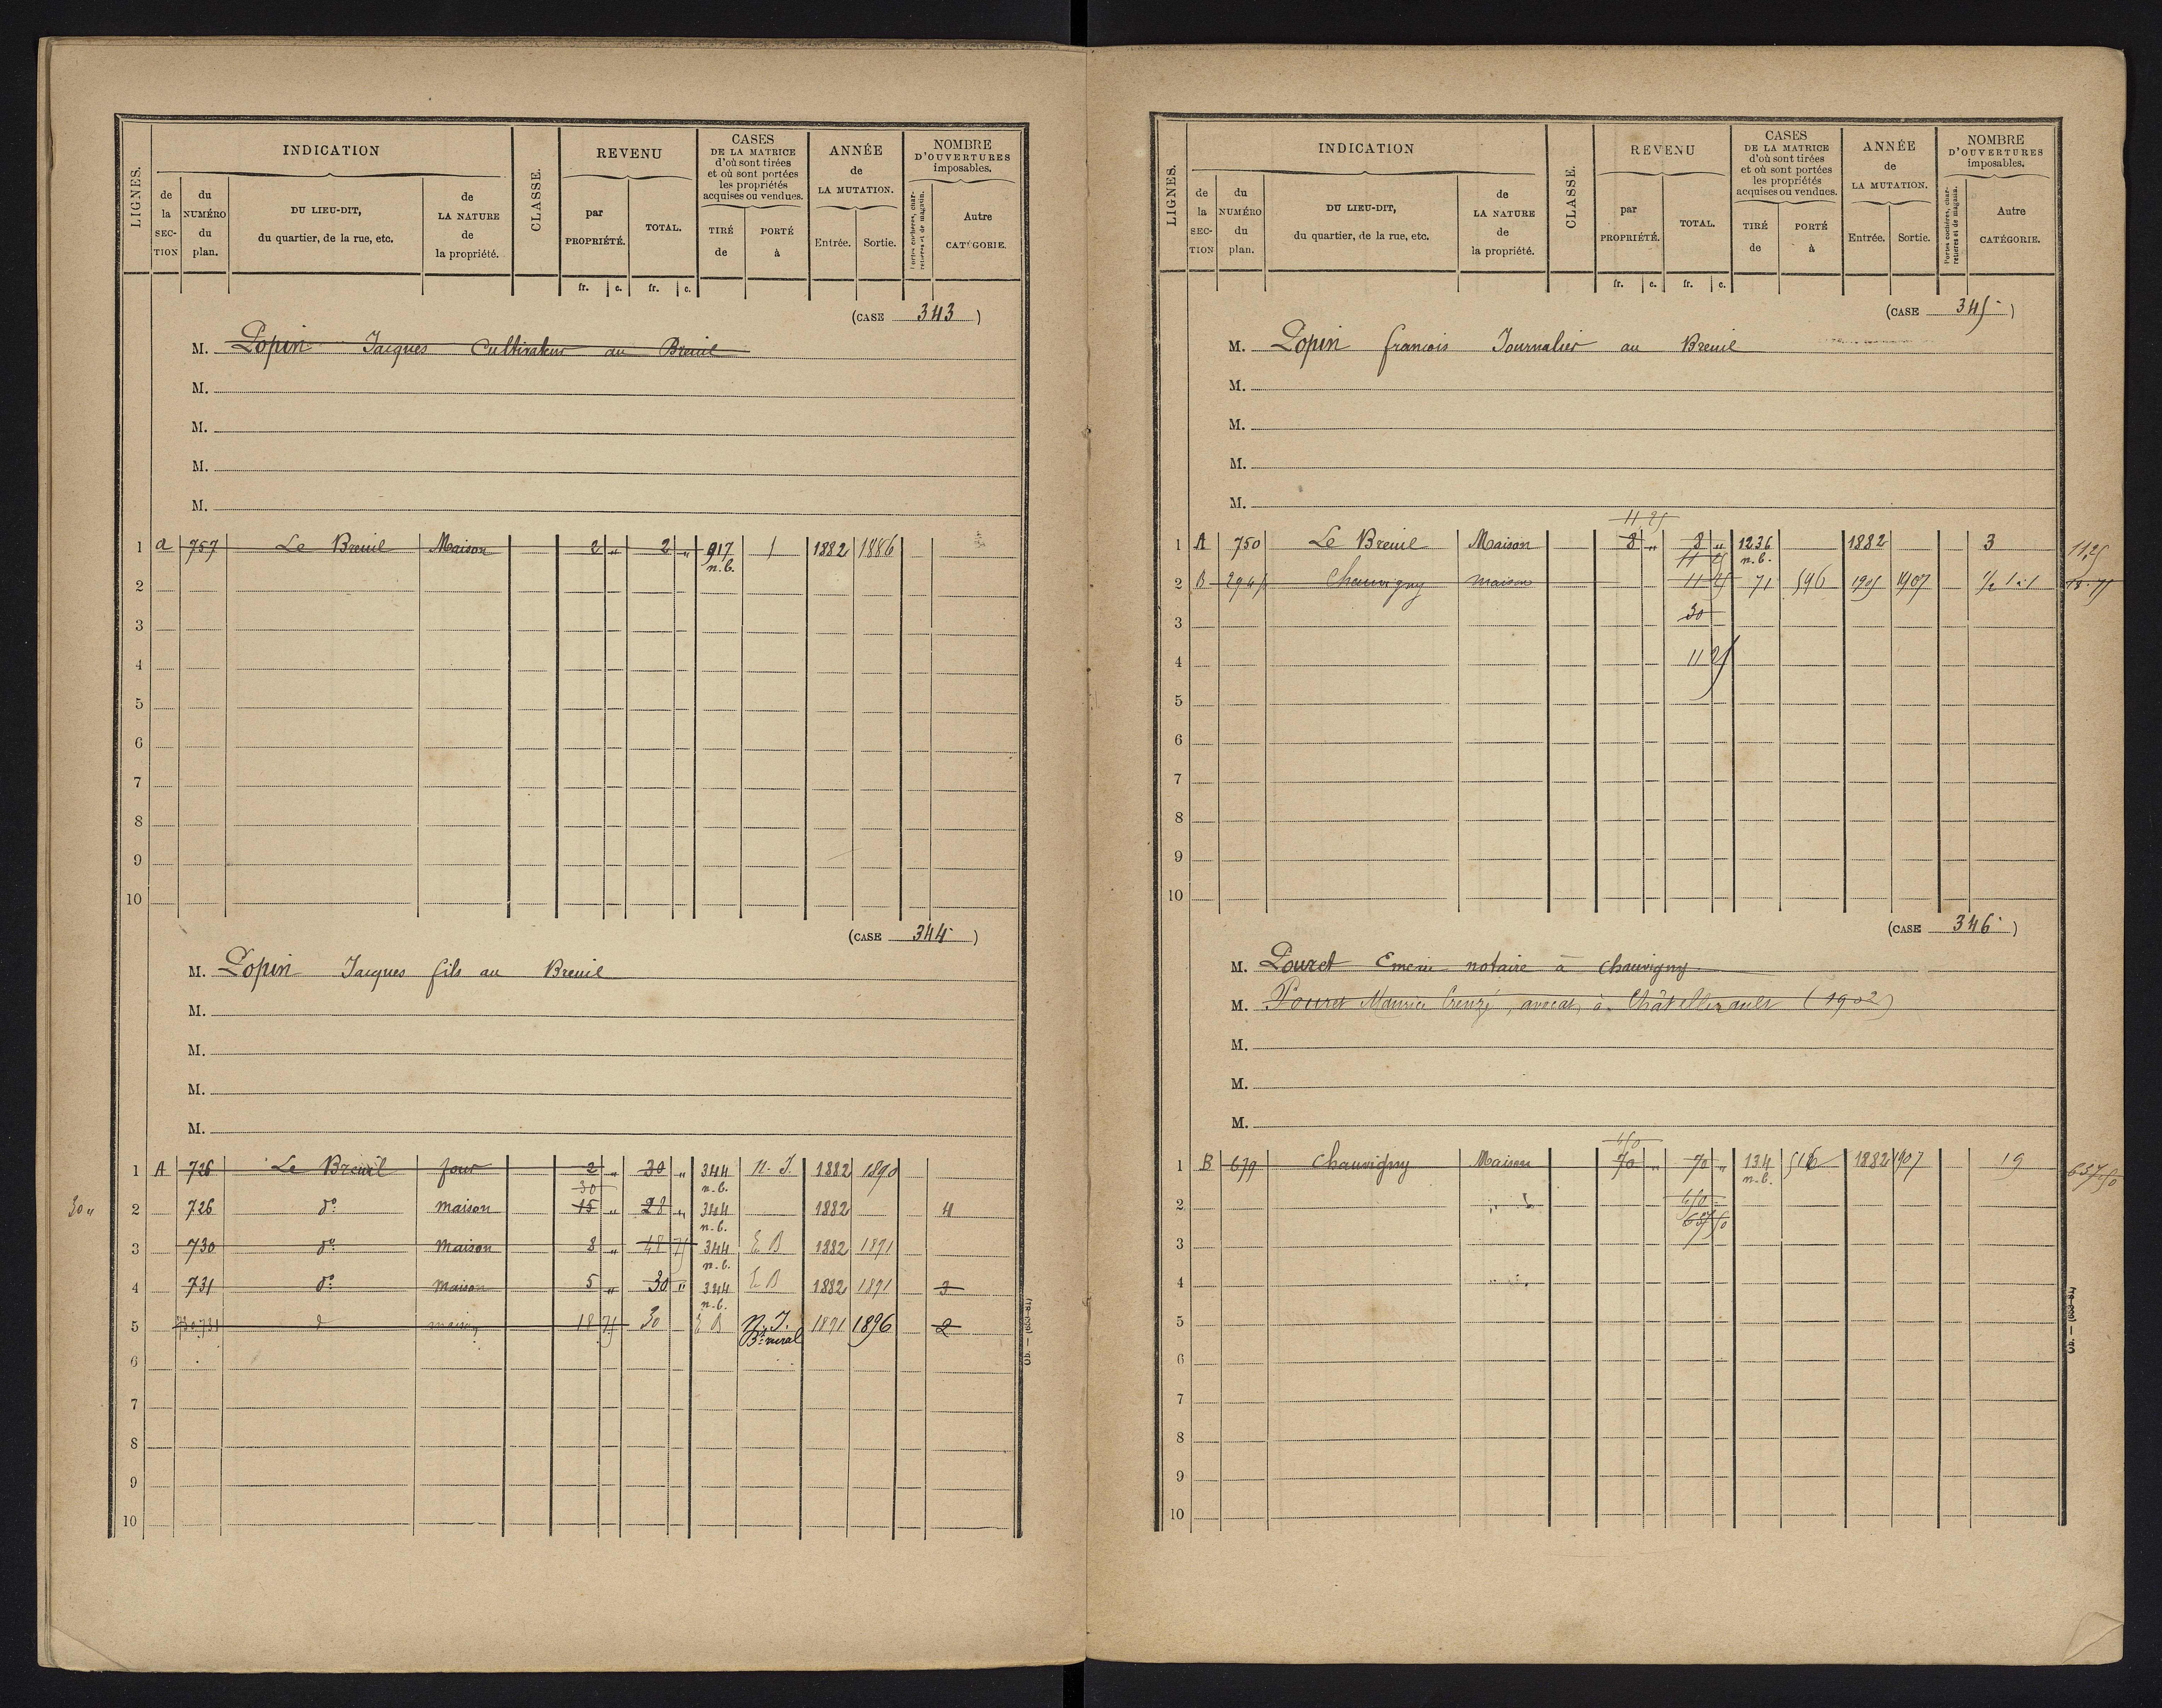 LIGNES.
INDICATION
de la SECTION
du NUMÉRO du plan.
DU LIEU-DIT, du quartier, de la rue, etc.
de LA NATURE de la propriété.
CLASSE.
REVENU
par PROPRIÉTÉ.
TOTAL.
CASES DE LA MATRICE d'où sont tirées et où sont portées les propriétés acquises ou vendues.
TIRÉ de
PORTÉ à
ANNÉE de LA MUTATION.
Entrée. Sortie.
NOMBRE D'OUVERTURES imposables.
Portes cochères, charretières et de magasin.
Autre CATÉGORIE.
fr. c. fr. c.
(CASE 343)
M. Popin Jacques Cultivateur au Breuil
M.
M.
M.
M.
1 a 757 Le Breuil Maison 2 " 2 " 917 1 1882 1886
n.b.
2
3
4
5
6
7
8
9
10
(CASE 344)
M. Popin Jacques fils au Breuil
M.
M.
M.
M.
1 A 726 Le Breuil four 2 " 30 " 344 n. I. 1882 1890
30 n.b.
30 " 2 726 d° maison 15 " 28 " 344 1882 4
n.b.
3 730 d° maison 8 " 48 75 344 E B 1882 1891
n.b.
4 731 d° maison 5 " 30 " 344 E B 1882 1891 3
n.b.
5 730.731 d maison 18 75 30 E B n. I. 1891 1896 2
Bt rural
6
7
8
9
10
Ob. — (639-81)
LIGNES.
INDICATION
de la SECTION
du NUMÉRO du plan.
DU LIEU-DIT, du quartier, de la rue, etc.
de LA NATURE de la propriété.
CLASSE.
REVENU
par PROPRIÉTÉ.
TOTAL.
CASES DE LA MATRICE d'où sont tirées et où sont portées les propriétés acquises ou vendues.
TIRÉ de
PORTÉ à
ANNÉE de LA MUTATION.
Entrée. Sortie.
NOMBRE D'OUVERTURES imposables.
Portes cochères, charretières et de magasin.
Autre CATÉGORIE.
fr. c. fr. c.
(CASE 345)
M. Popin françois Journalier au Breuil
M.
M.
M.
M.
11 25
1 A 750 Le Breuil Maison 8 " 8 " 1236 1882 3 11,25
11 25 n.b.
2 B Chauvigny maison 11 25 71 596 1905 1907 18.75
3 30
4 11 25
5
6
7
8
9
10
(CASE 346)
M. Pouret notaire à Chauvigny
M. Pouret Maurice Creuzé, avocat, à Châtellerault (1902)
M.
M.
M.
1 B 679 Chauvigny Maison 70 " 70 " 134 516 1882 1907 19 637 50
n.b.
2
3
4
5
6
7
8
9
10